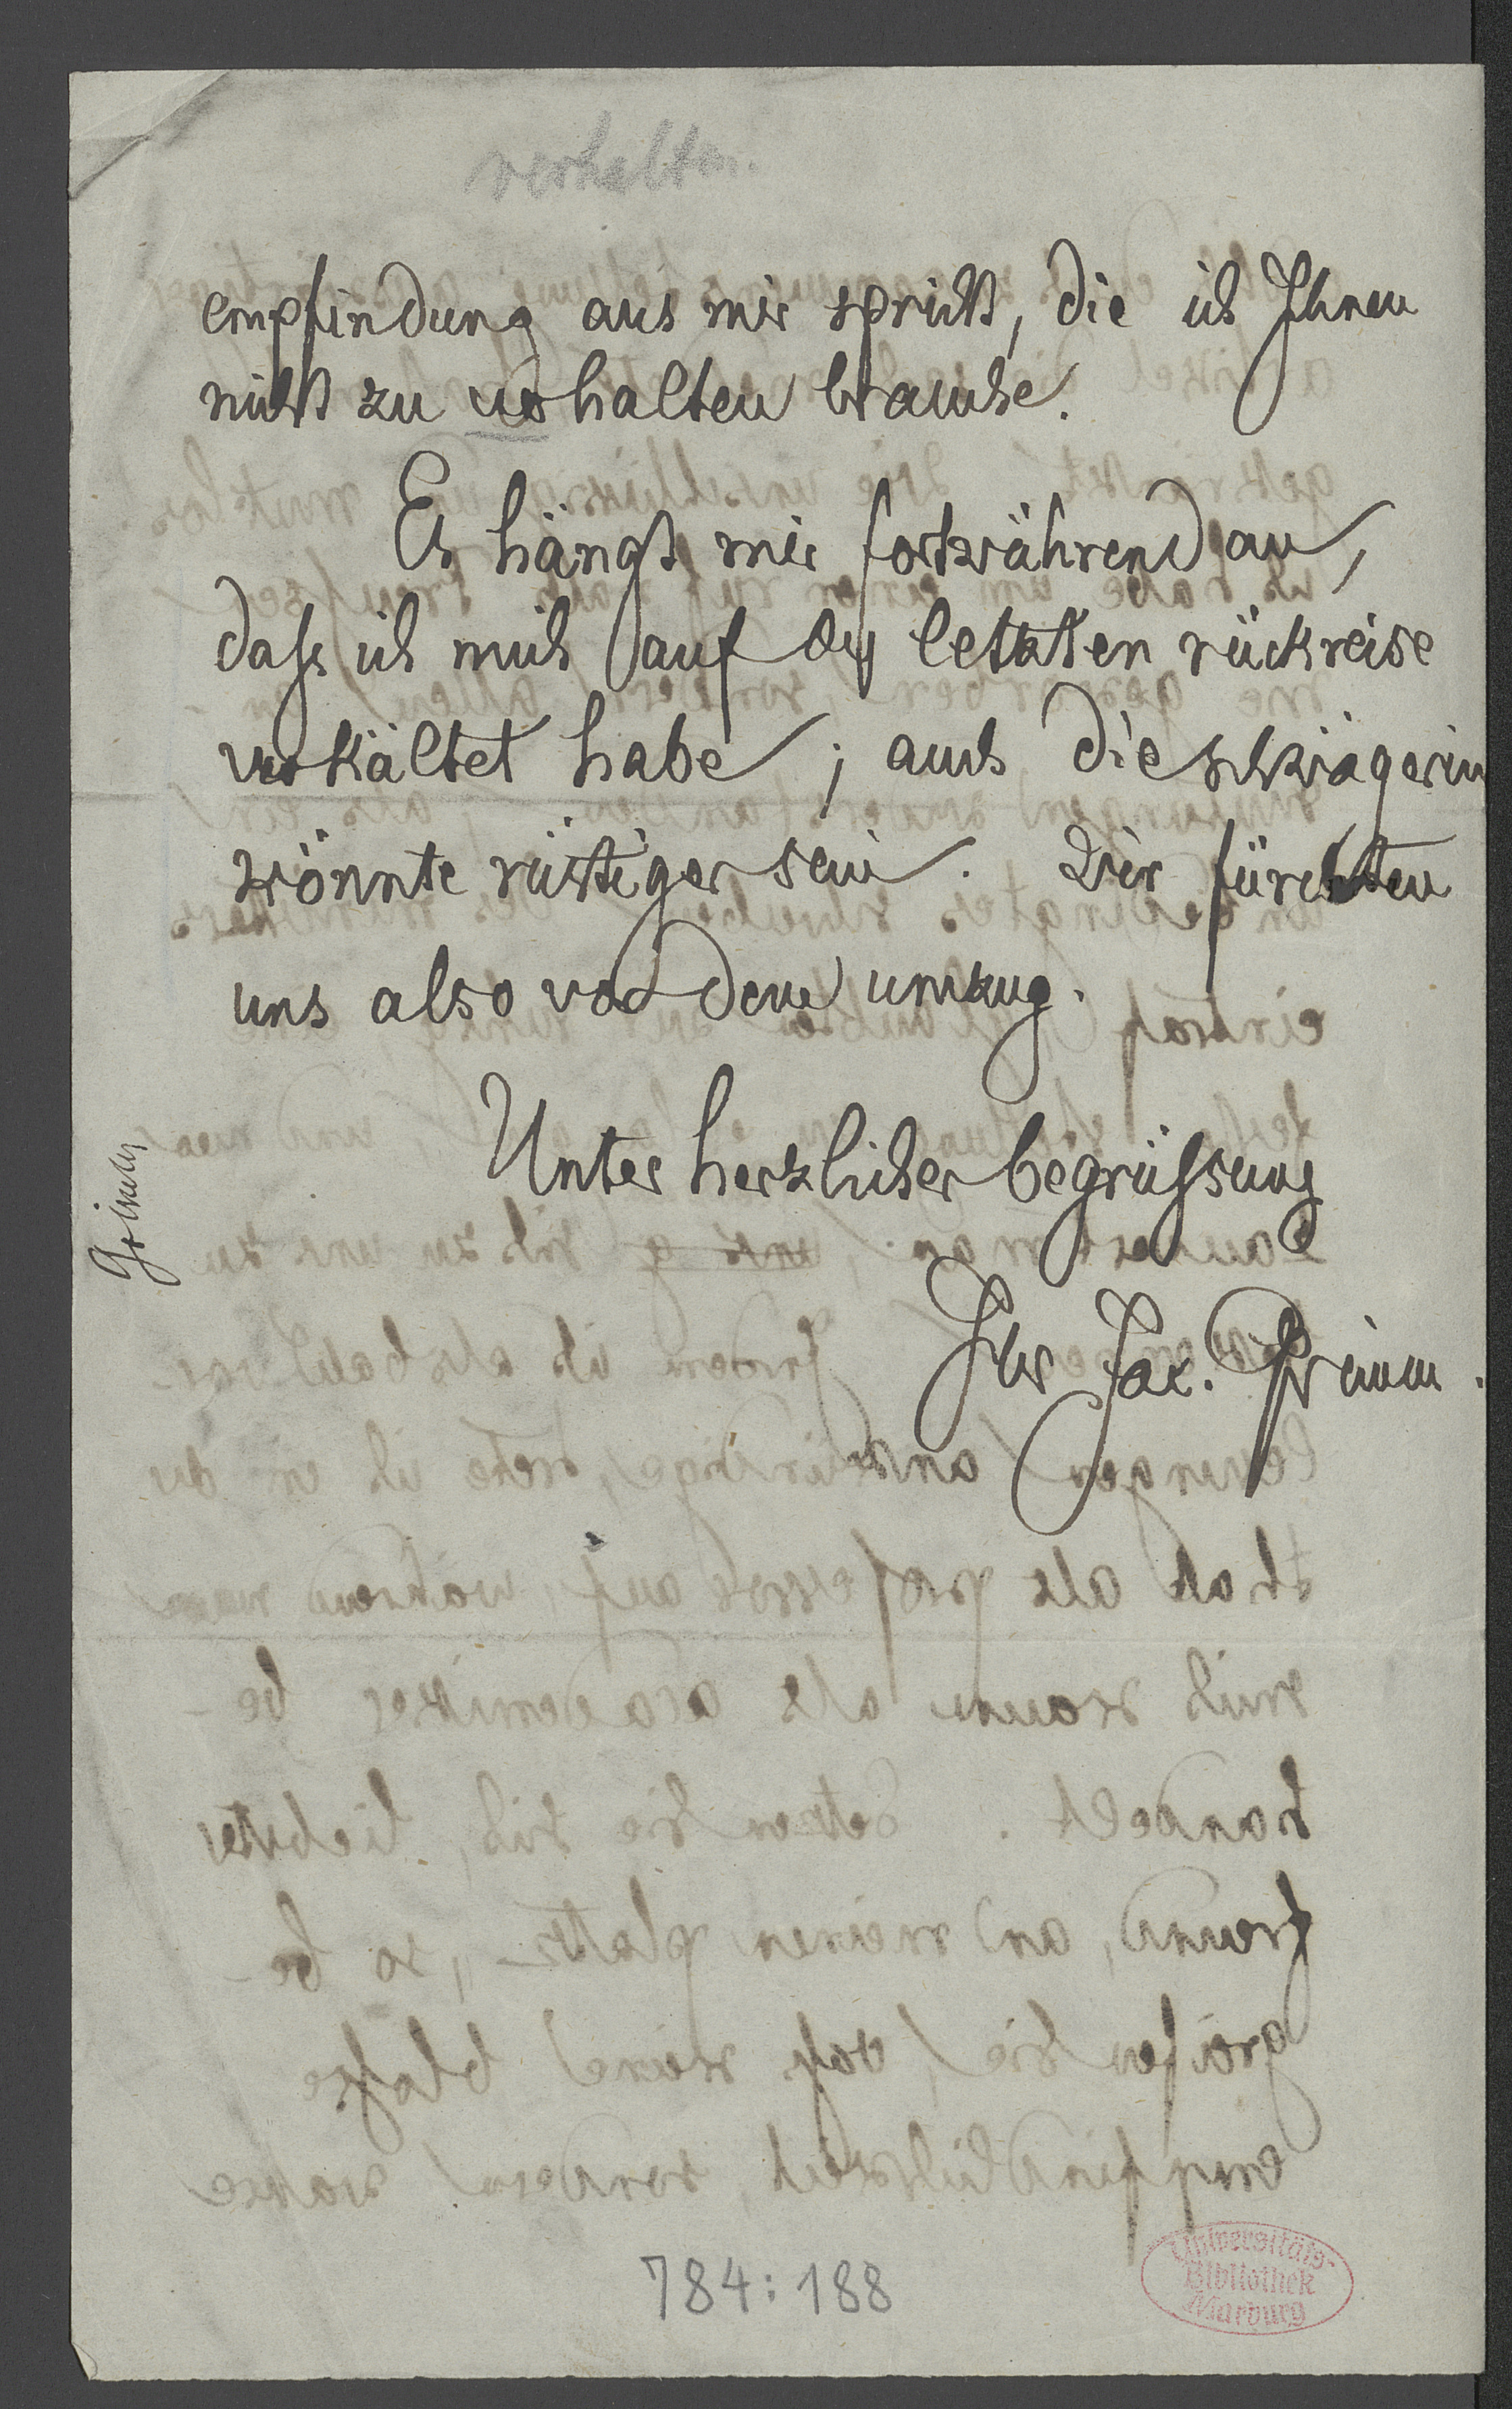 verhalten.
empfindung aus mir spricht, die ich Ihnen
nicht zu verhalten brauche.
Es hängt mir fortwährend an,
dafs ich mich auf der letzten rückreise
verkältet habe; auch die schwägerin
könnte rüstiger sein. Wir fürchten
uns also vor dem umzug.
Unter herzlicher begrüfsung
Ihr Jac. Grimm.
784:188
Universitäts-
Bibliothek
Marburg